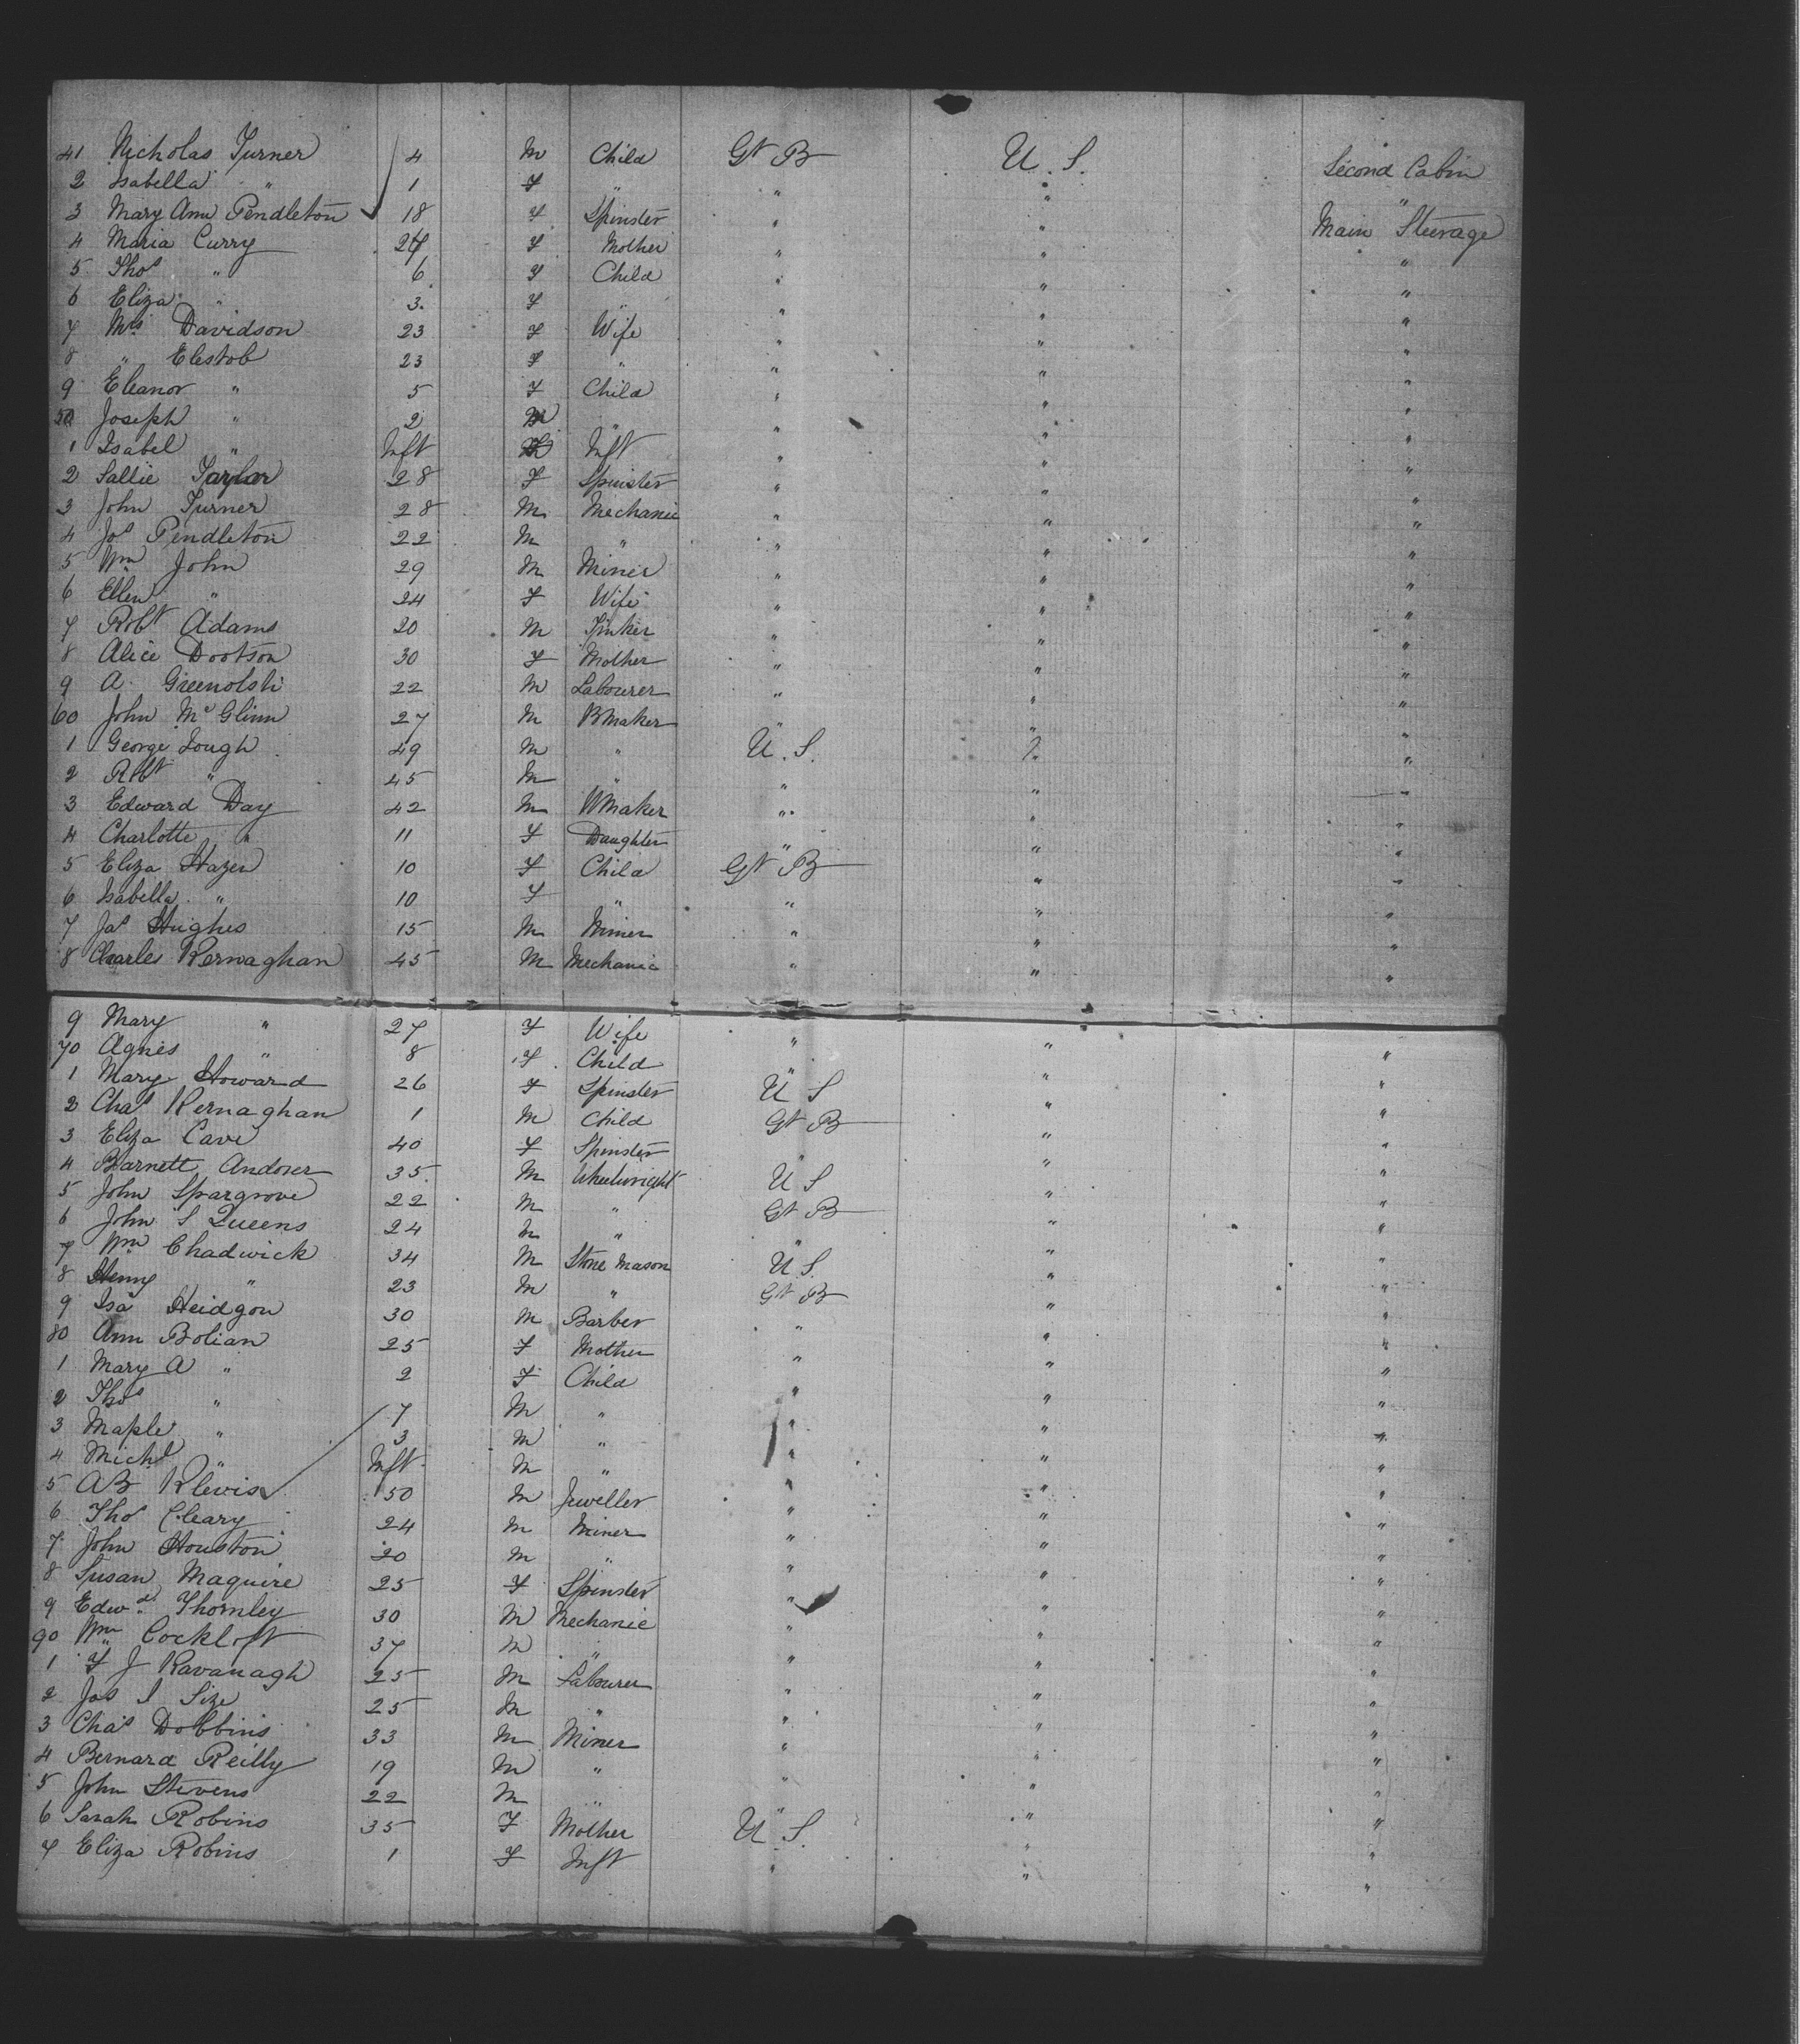 41 Nicholas Turner 4 M Child Gt B U.S. Second Cabin
2 Isabella " 1 F " " " "
3 Mary Ann Pendleton 18 F Spinster " " Main Steerage
4 Maria Curry 24 F Mother " " "
5 Thos " 6 F Child " " "
6 Eliza " 3 F " " " "
7 Mrs Davidson 23 F Wife " " "
8 " Elestob 23 F " " " "
9 Eleanor " 5 F Child " " "
50 Joseph " 2 M " " " "
1 Isabel " Inft Inft " " "
2 Sallie Taylor 28 F Spinster " " "
3 John Turner 28 M Mechanic " " "
4 Jos Pendleton 22 M " " " "
5 Wm John 29 M Miner " " "
6 Ellen " 24 F Wife " " "
7 Robt Adams 20 M Tinker " " "
8 Alice Dootson 30 F Mother " " "
9 A. Greenolsh 22 M Labourer " " "
60 John McGlinn 27 M BMaker " " "
1 George Lough 49 M " U.S. "
2 Robt " 45 M " " " "
3 Edward Day 42 M WMaker " " "
4 Charlotte " 11 F Daughter " " "
5 Eliza Hazen 10 F Child Gt B " "
6 Isabella " 10 F " " " "
7 Jas Hughes 15 M Miner " " "
8 Charles Kernaghan 45 M Mechanic " " "
9 Mary " 27 F Wife " " "
70 Agnes " 8 F Child " " "
1 Mary Howard 26 F Spinster U S " "
2 Chas Kernaghan 1 M Child Gt B " "
3 Eliza Cave 40 F Spinster " " "
4 Barnett Andover 35 M Wheelwright U S " "
5 John Spargrove 22 M " Gt B " "
6 John S Queens 24 M " " " "
7 Wm Chadwick 34 M Stone Mason U S. " "
8 Henry " 23 M " Gt B " "
9 Isa Heidgon 30 M Barber " " "
80 Ann Bolian 25 F Mother " " "
1 Mary A " 2 F Child " " "
2 Thos " 7 M " " " "
3 Maple " 3 M " " " "
4 Michl " Inft M " " " "
5 AB Klevis 50 M Jeweller " " "
6 Thos Cleary 24 M Miner " " "
7 John Houston 20 M " " " "
8 Susan Maguire 25 F Spinster " " "
9 Edwd Thornley 30 M Mechanic " " "
90 Wm Cockloft 37 M " " " "
1 F J Kavanagh 25 M Labourer " " "
2 Jos I Size 25 M " " " "
3 Chas Dobbins 33 M Miner " " "
4 Bernard Reilly 19 M " " " "
5 John Stevens 22 M " " " "
6 Sarah Robins 35 F Mother U S. " "
7 Eliza Robins 1 F Inft " " "